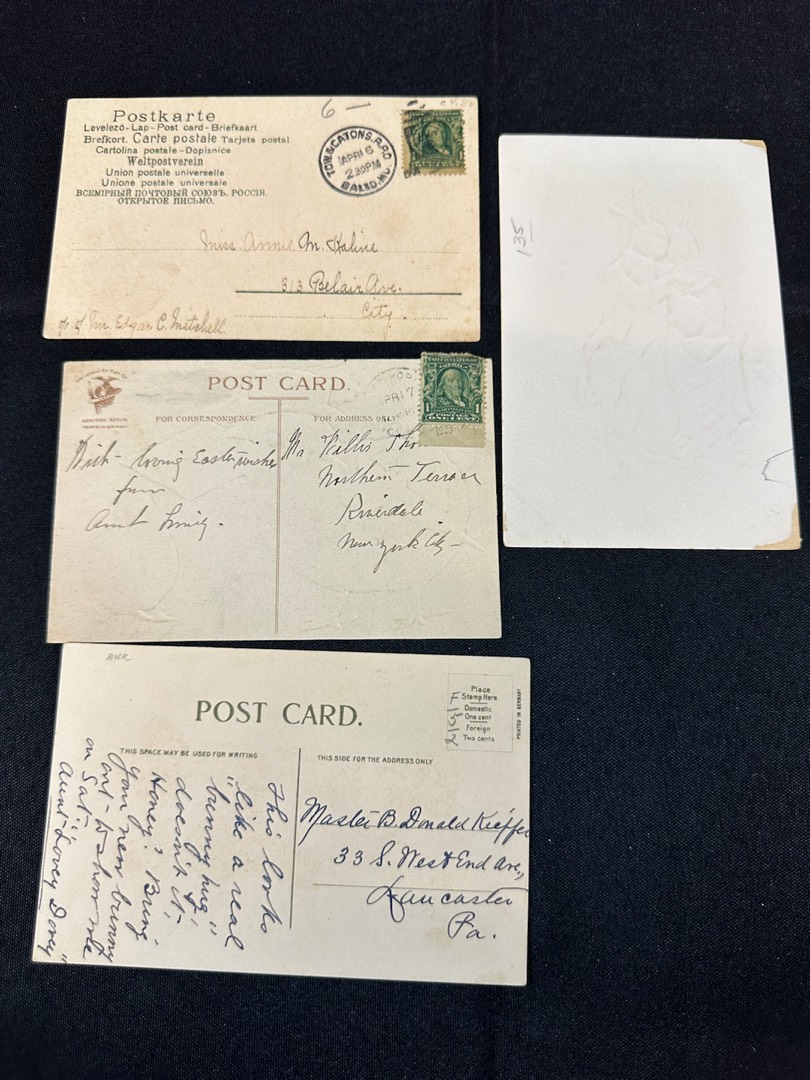 6 —
Postkarte
Levelező-Lap-Post card-Briefkaart
Brefkort. Carte postale Tarjeta postal
Cartolina postale-Dopisnice
Weltpostverein
Union postale universelle
Unione postale universale
ВСЕМІРНЫЙ ПОЧТОВЫЙ СОЮЗЪ. РОССІЯ.
ОТКРЫТОЕ ПИСЬМО.
TOW. & CATONS. R.P.O.
APR 6
2 30 PM
BALTO. MD.
Miss. Annie M. Kaline
313 Belair Ave.
City.
c/o of Mr. Edgar C. Mitchell
135
POST CARD.
FOR CORRESPONDENCE
FOR ADDRESS ONLY
PRINTED IN GERMANY
APR 17
1 1
With loving Easter wishes
from
Aunt
Mr Willis
Northern Terrace
Riverdale
New York City
POST CARD.
Place
Stamp Here
Domestic
One cent
Foreign
Two cents
PRINTED IN GERMANY
THIS SPACE MAY BE USED FOR WRITING
THIS SIDE FOR THE ADDRESS ONLY
This looks
"like a real
bunny hug"
doesn't it,
Honey? Bring
your new bunny
out to show me
on Sat.
Aunt "Lovey Dovey"
Master B. Donald Kieffer
33 S. West End Ave.,
Lancaster
Pa.